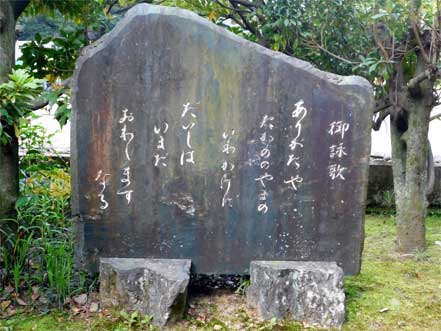 御詠歌
ありがたや
たかののやまの
いわかげに
だいしは
いまだ
おわします
なる